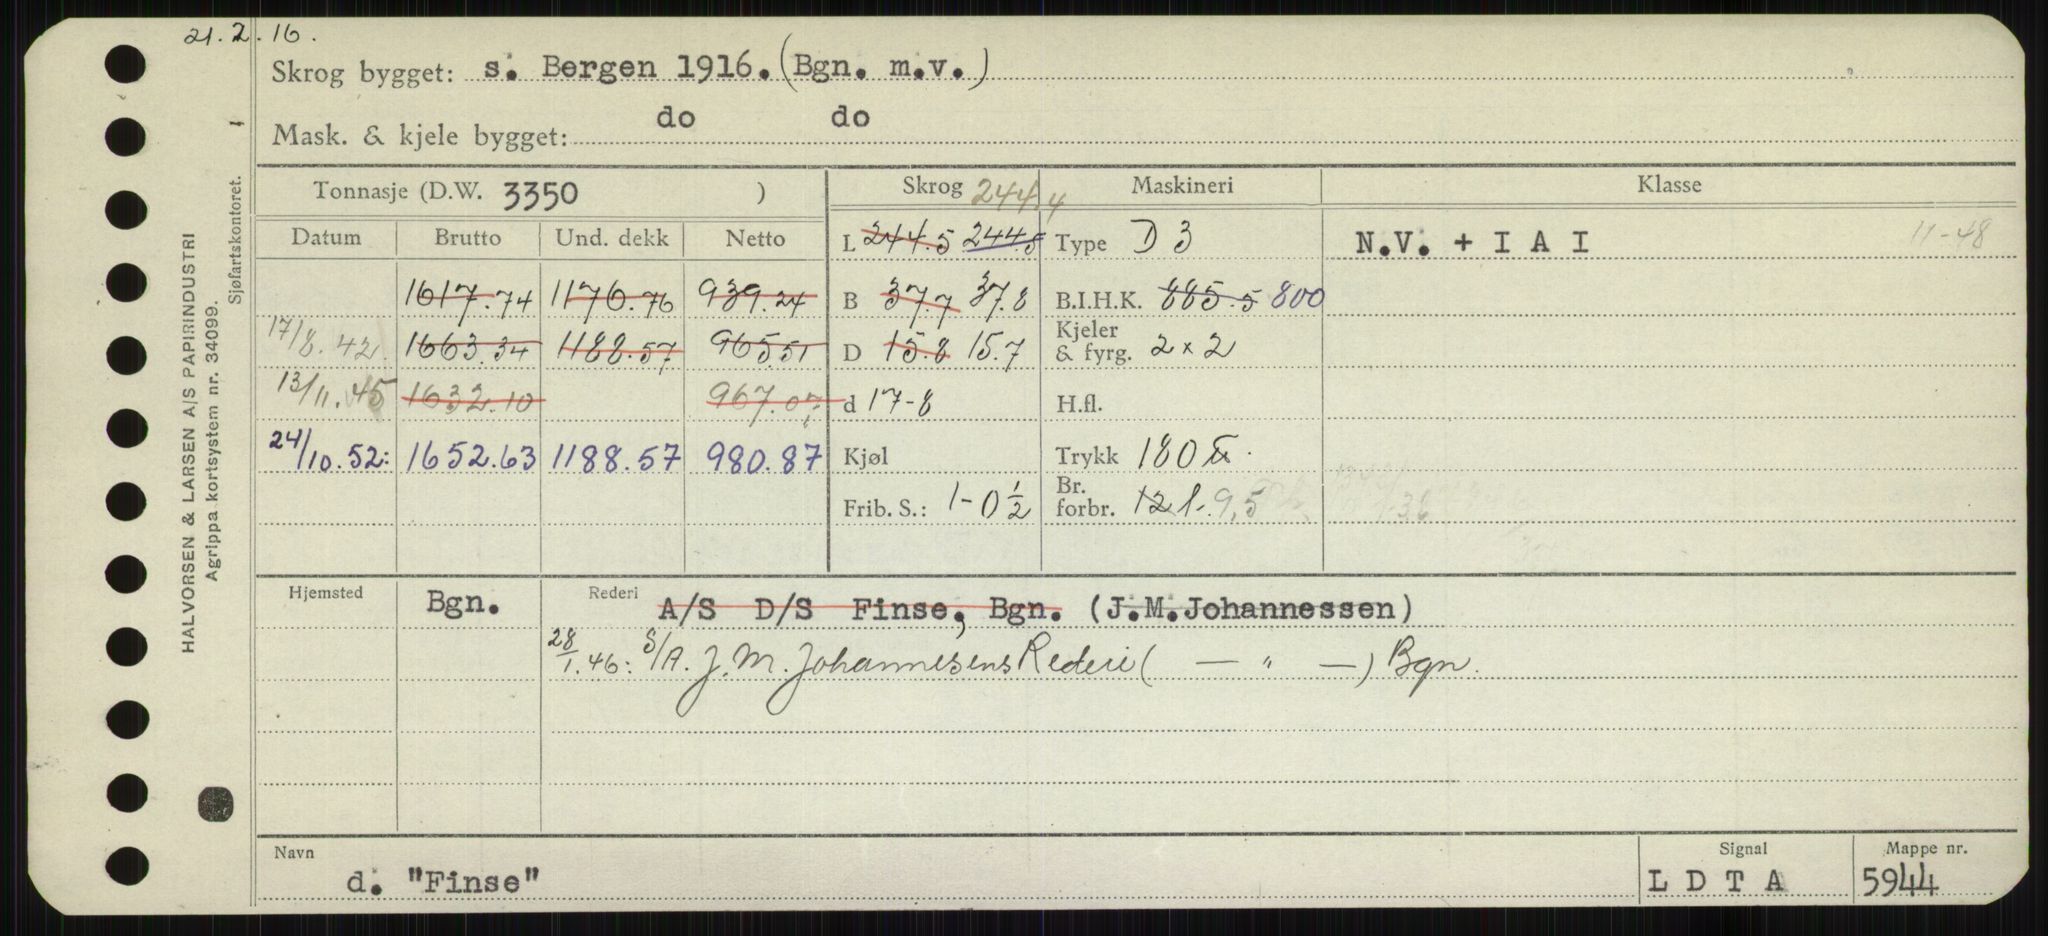 21.2.16.
Skrog bygget: s. Bergen 1916. (Bgn. m.v.)
Mask. & kjele bygget: do do
Tonnasje (D.W. 3350 )
Skrog 244.4
Maskineri
Klasse
Datum Brutto Und. dekk Netto
L 244.5 244.5
Type D 3
N.V. + I A I 11-48
1617.74 1176.76 939.24
B 37.7 37.8
B.I.H.K. 885.5 800
17/8.42 1663.34 1188.57 965.51
D 15.8 15.7
Kjeler & fyrg. 2 x 2
13/11.45 1632.10 967.07
d 17-8
H.fl.
24/10.52: 1652.63 1188.57 980.87
Kjøl
Trykk 180
Frib. S.: 1-0 1/2
Br. forbr. 12 t. 9,5
Hjemsted Bgn.
Rederi A/S D/S Finse, Bgn. (J.M.Johannessen)
28/1.46: S/A. J. M. Johannesens Rederi ( — " — ) Bgn.
Navn d. "Finse"
Signal L D T A
Mappe nr. 5944
HALVORSEN & LARSEN A/S PAPIRINDUSTRI
Agrippa kortsystem nr. 34099.
Sjøfartskontoret.